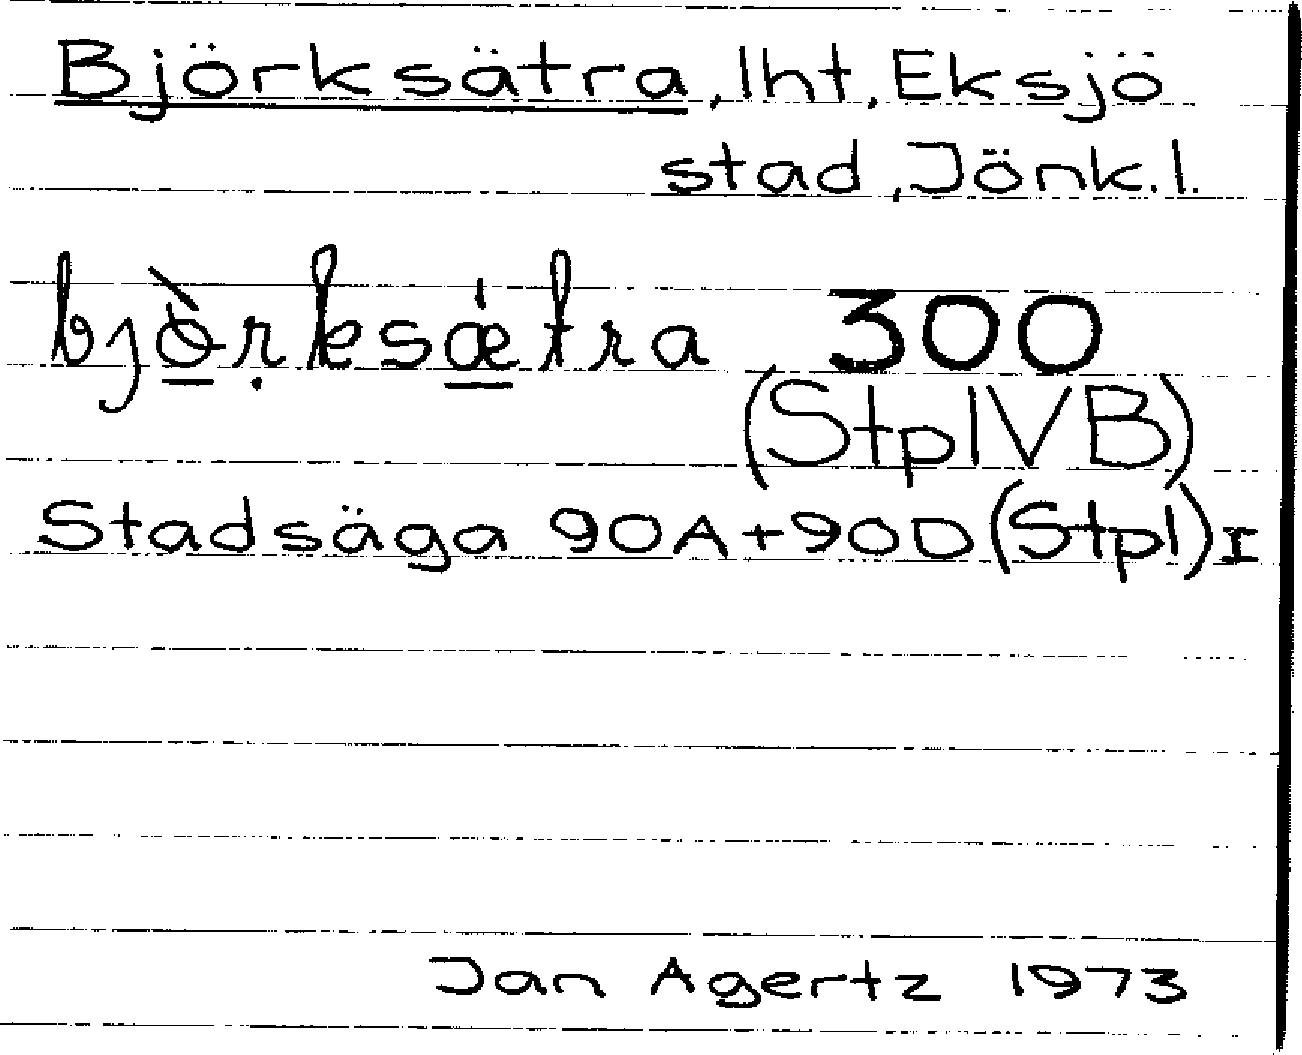 Björksätra, lht, Eksjö
stad, Jönk.l.
bjò̠ṛksǽ̠tra 300
(Stpl V B)
Stadsäga 90A+90D (Stpl) I
Jan Agertz 1973